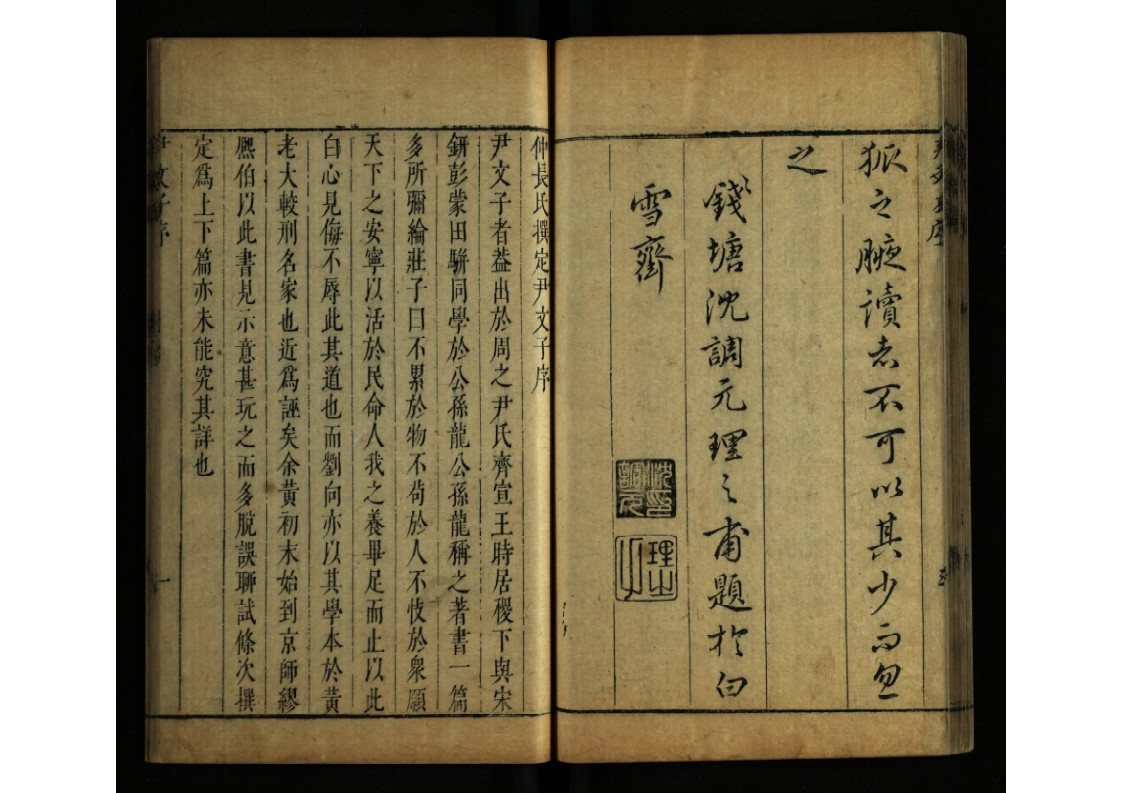 狐之腋讀者不可以其少而忽
之
錢塘沈調元理之甫題於白
雪齋
沈調元印
理之
仲長氏撰定尹文子序
尹文子者葢出於周之尹氏齊宣王時居稷下與宋
鈃彭蒙田駢同學於公孫龍公孫龍稱之著書一篇
多所彌綸莊子曰不累於物不苟於人不忮於衆願
天下之安寧以活於民命人我之養畢足而止以此
白心見侮不辱此其道也而劉向亦以其學本於黃
老大較刑名家也近爲誣矣余黃初末始到京師繆
熈伯以此書見示意甚玩之而多脫誤聊試條次撰
定爲上下篇亦未能究其詳也
尹文子序
一